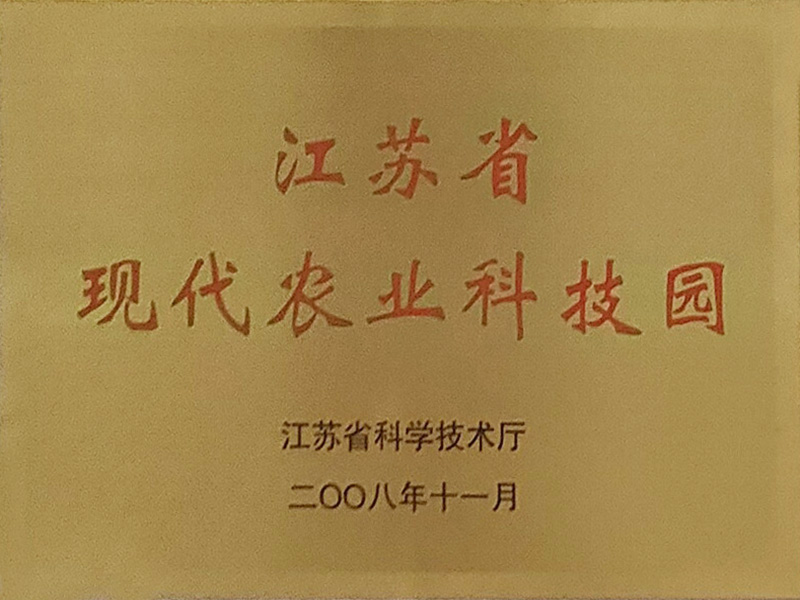 江苏省
现代农业科技园
江苏省科学技术厅
二〇〇八年十一月